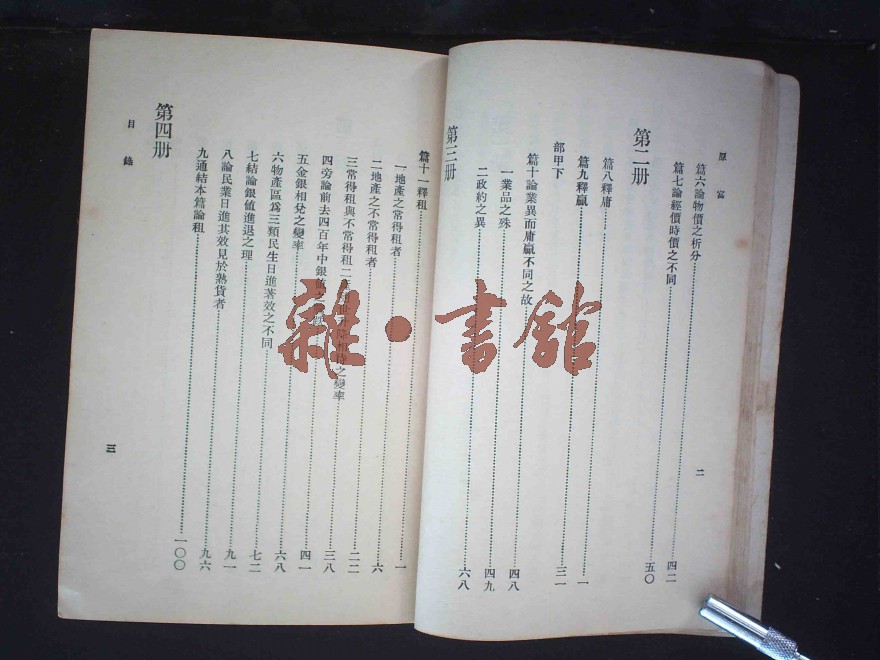 原富
二
篇六論物價之析分……四二
篇七論經價時價之不同……五〇
第二册
篇八釋庸……一
篇九釋贏……三一
部甲下
篇十論業異而庸贏不同之故……四八
一業品之殊……四九
二政約之異……六八
第三册
篇十一釋租……一
一地產之常得租者……六
二地產之不常得租者……二二
三常得租與不常得租二 之變率……三八
四旁論前去四百年中銀值……四一
五金銀相兌之變率……六八
六物產區爲三類民生日進著效之不同……七二
七結論銀值進退之理……九一
八論民業日進其效見於熟貨者……九六
九通結本篇論租……一〇〇
第四册
目錄
三
雜·書館